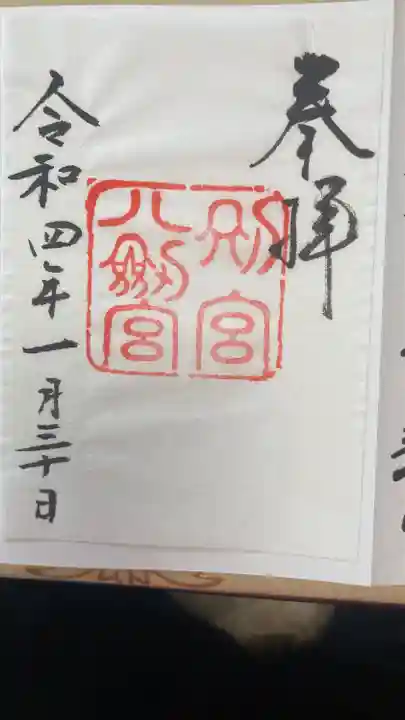 奉拝
別宮
八剱宮
令和四年一月三十日